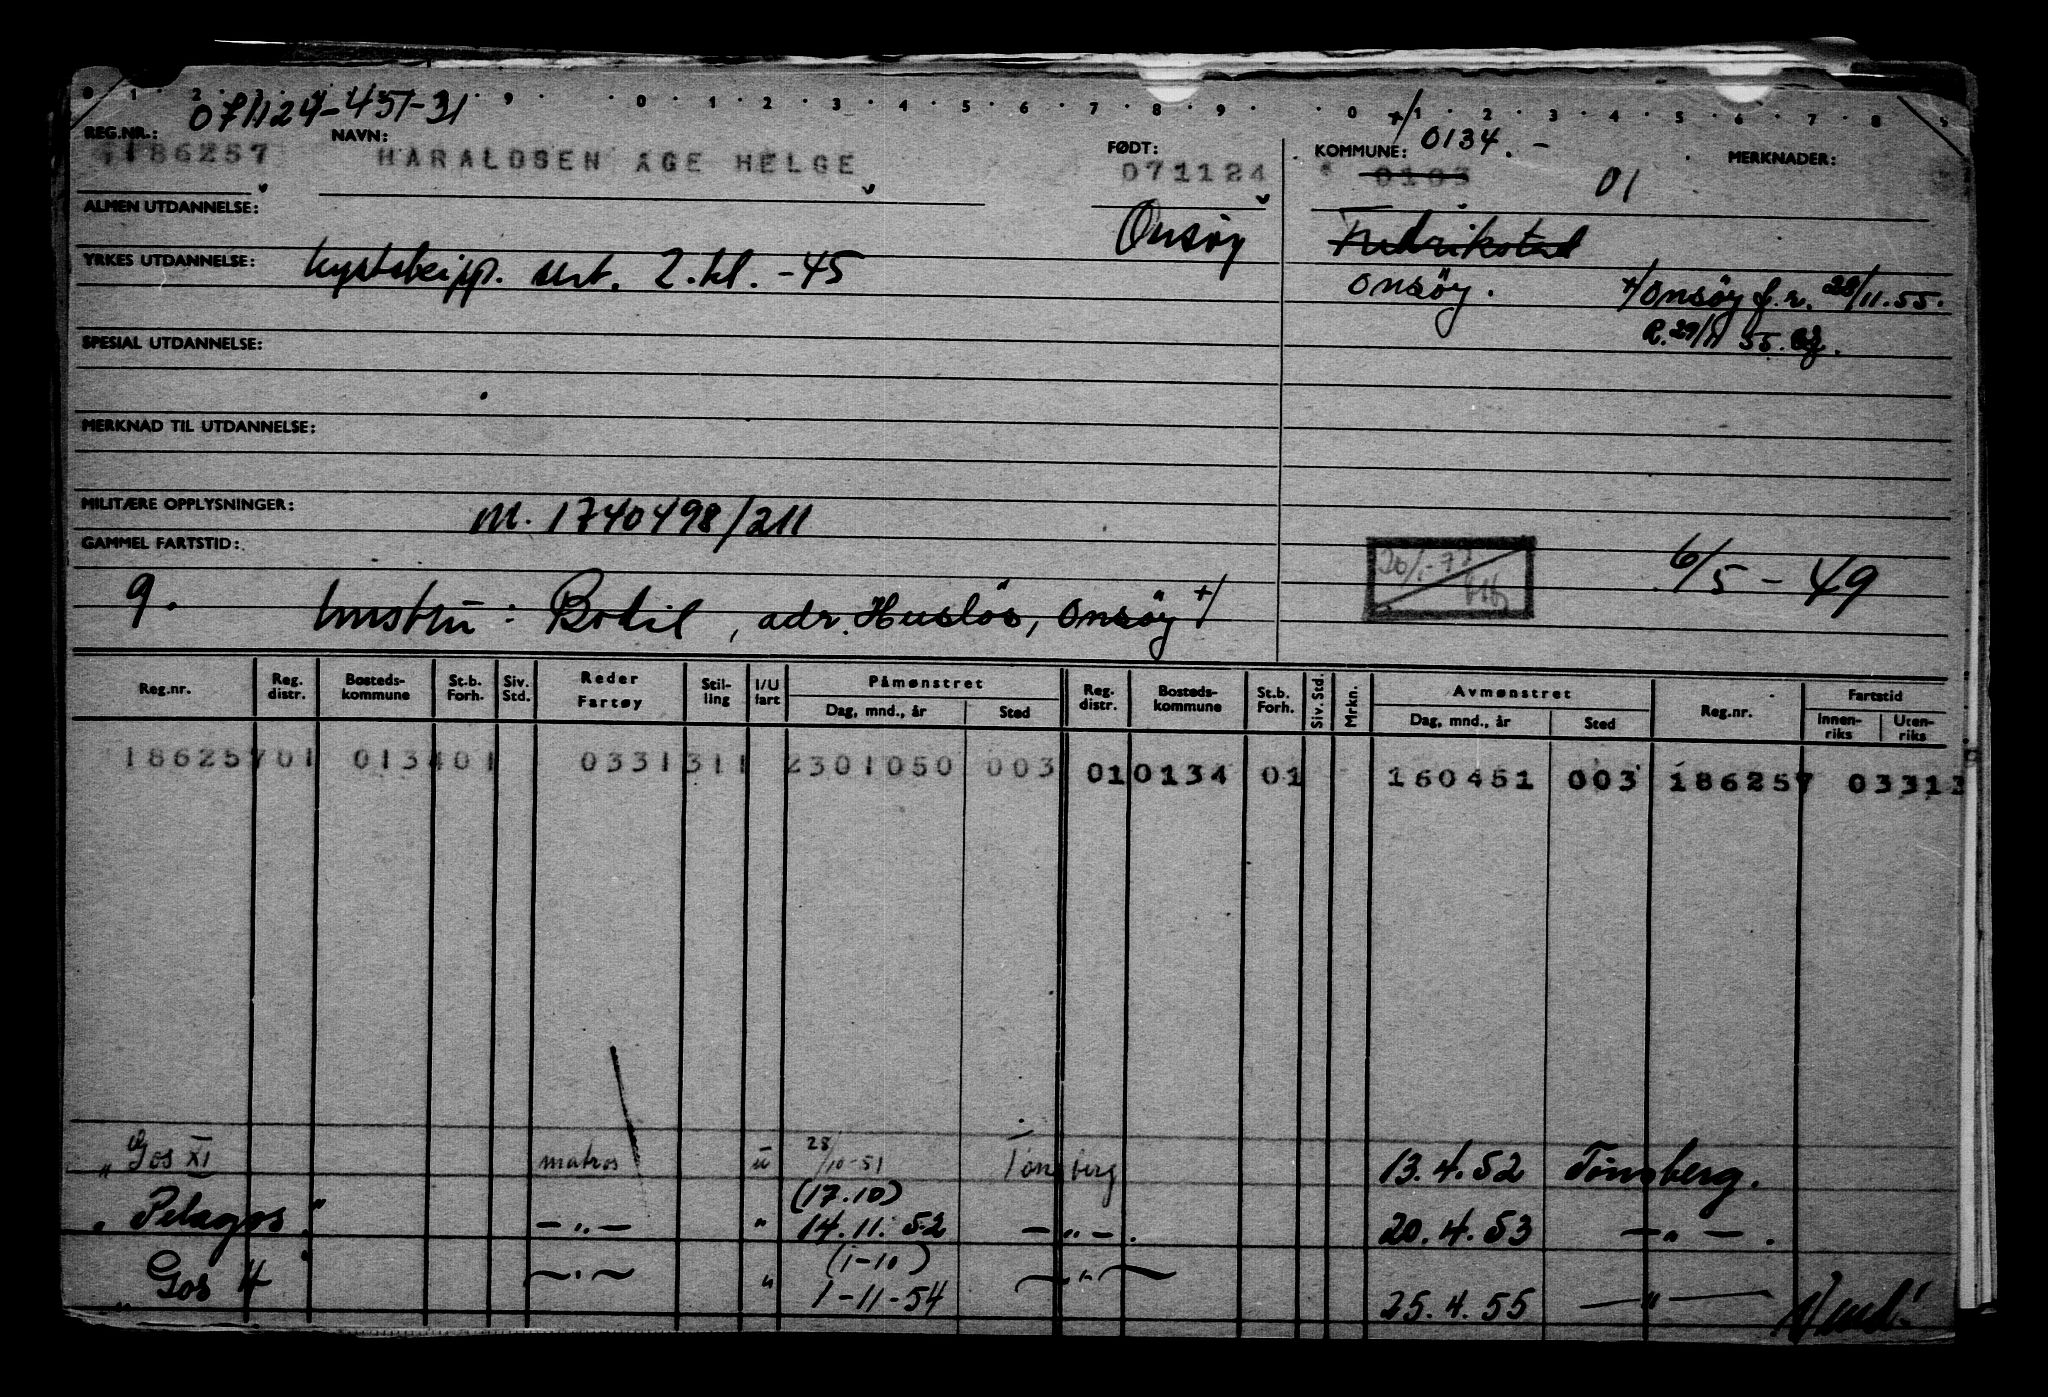 0 1 2 9 0 1 2 3 4 5 6 7 8 9 0 1 2 3 4 5 6 7 8 5
071124-451-31
REG.NR.: NAVN: FØDT: KOMMUNE: 0134. - MERKNADER:
186257 HARALDSEN ÅGE HELGE 071124 0103 01
ALMEN UTDANNELSE: Onsøy Fredrikstad
YRKES UTDANNELSE: kystskipp. sert. 2. kl. -45 Onsöy. +/ Onsöy f.r. 28/11.55.
SPESIAL UTDANNELSE: R. 29/11 55.
MERKNAD TIL UTDANNELSE:
MILITÆRE OPPLYSNINGER: M. 1740498/211
GAMMEL FARTSTID: 26/1-77 6/5-49
9. hustru: Bodil, adr. Huslös, Onsöy +/
Reg.nr. Reg. distr. Bosteds-kommune St.b. Forh. Siv. Std. Reder Fartøy Stil-ling I/U fart Påmønstret Dag, mnd., år Sted Reg. distr. Bosteds-kommune St.b. Forh. Siv. Std. Mrkn. Avmønstret Dag, mnd., år Sted Reg.nr. Fartstid Innen-riks Uten-riks
18625701 013401 0331311 2301050 003 010134 01 160451 003 186257 03313
" Gos XI matros u 28/10-51 Tønsberg 13.4.52 Tönsberg.
(17.10)
" Pelagos " -"- " 14.11.52 -"-. 20.4.53 -"-.
(1-10)
" Gos 4 -"- " 1-11-54 -"- 25.4.55 -"- Vend!